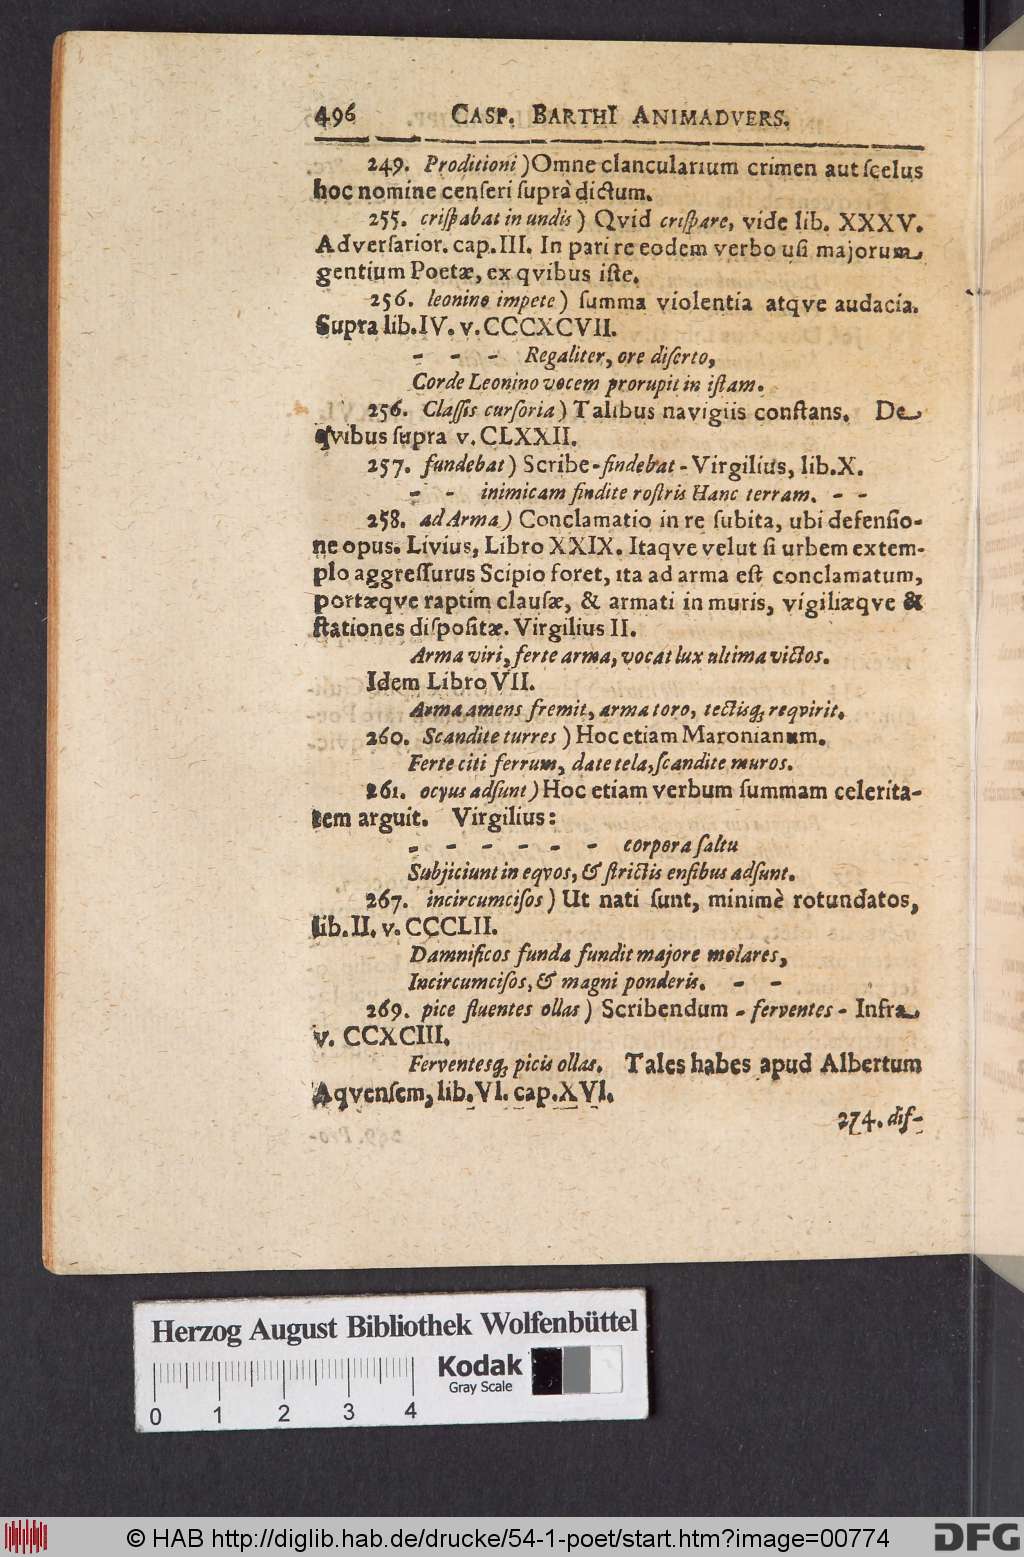 496 CASP. BARTHI ANIMADVERS.
249. Proditioni) Omne clancularium crimen aut ſcelus
hoc nomine cenſeri ſuprà dictum.
255. criſpabat in undis) Qvid criſpare, vide lib. XXXV.
Adverſarior. cap. III. In pari re eodem verbo uſi majorum
gentium Poetæ, ex qvibus iſte.
256. leonino impete) ſumma violentia atqve audacia.
Supra lib. IV. v. CCCXCVII.
- - - Regaliter, ore diſerto,
Corde Leonino vocem prorupit in iſtam.
256. Claſſis curſoria) Talibus navigiis conſtans. De
qvibus ſupra v. CLXXII.
257. fundebat) Scribe - findebat - Virgilius, lib. X.
- - inimicam findite roſtris Hanc terram. - -
258. ad Arma) Conclamatio in re ſubita, ubi defenſio-
ne opus. Livius, Libro XXIX. Itaqve velut ſi urbem extem-
plo aggreſſurus Scipio foret, ita ad arma eſt conclamatum,
portæqve raptim clauſæ, & armati in muris, vigiliæqve &
ſtationes diſpoſitæ. Virgilius II.
Arma viri, ferte arma, vocat lux ultima victos.
Idem Libro VII.
Arma amens fremit, arma toro, tectisq; reqvirit.
260. Scandite turres) Hoc etiam Maronianum.
Ferte citi ferrum, date tela, ſcandite muros.
261. ocyus adſunt) Hoc etiam verbum ſummam celerita-
tem arguit. Virgilius:
- - - - - - corpora ſaltu
Subjiciunt in eqvos, & ſtrictis enſibus adſunt.
267. incircumciſos) Ut nati ſunt, minimè rotundatos,
lib. II. v. CCCLII.
Damnificos funda fundit majore molares,
Incircumciſos, & magni ponderis. - -
269. pice fluentes ollas) Scribendum - ferventes - Infra
v. CCXCIII.
Ferventesq; picis ollas. Tales habes apud Albertum
Aqvenſem, lib. VI. cap. XVI.
274. diſ-
Herzog August Bibliothek Wolfenbüttel
Kodak
Gray Scale
0 1 2 3 4
© HAB http://diglib.hab.de/drucke/54-1-poet/start.htm?image=00774
DFG